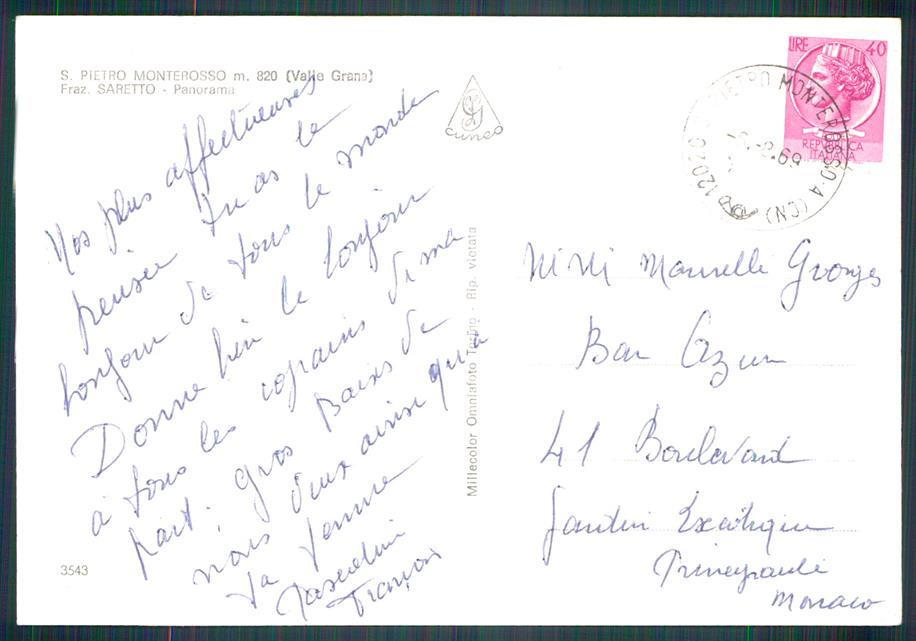 S. PIETRO MONTEROSSO m. 820 (Valle Grana)
Fraz. SARETTO - Panorama
CUNEO
LIRE 40
REPUBBLICA
ITALIANA
PIETRO MONTEROSSO-A (CN)
Nos plus affectueuses
pensée Tu as le
bonjour de tous le monde
Donne bien le bonjour
à tous les copains de ma
part; gros Baixs de
nous deux ainsi qu'a
ta femme
François
Millecolor Omniafoto Torino - Rip. vietata
Georges
Bar Azur
41 Boulevard
Jardin Exotique
Monaco
3543